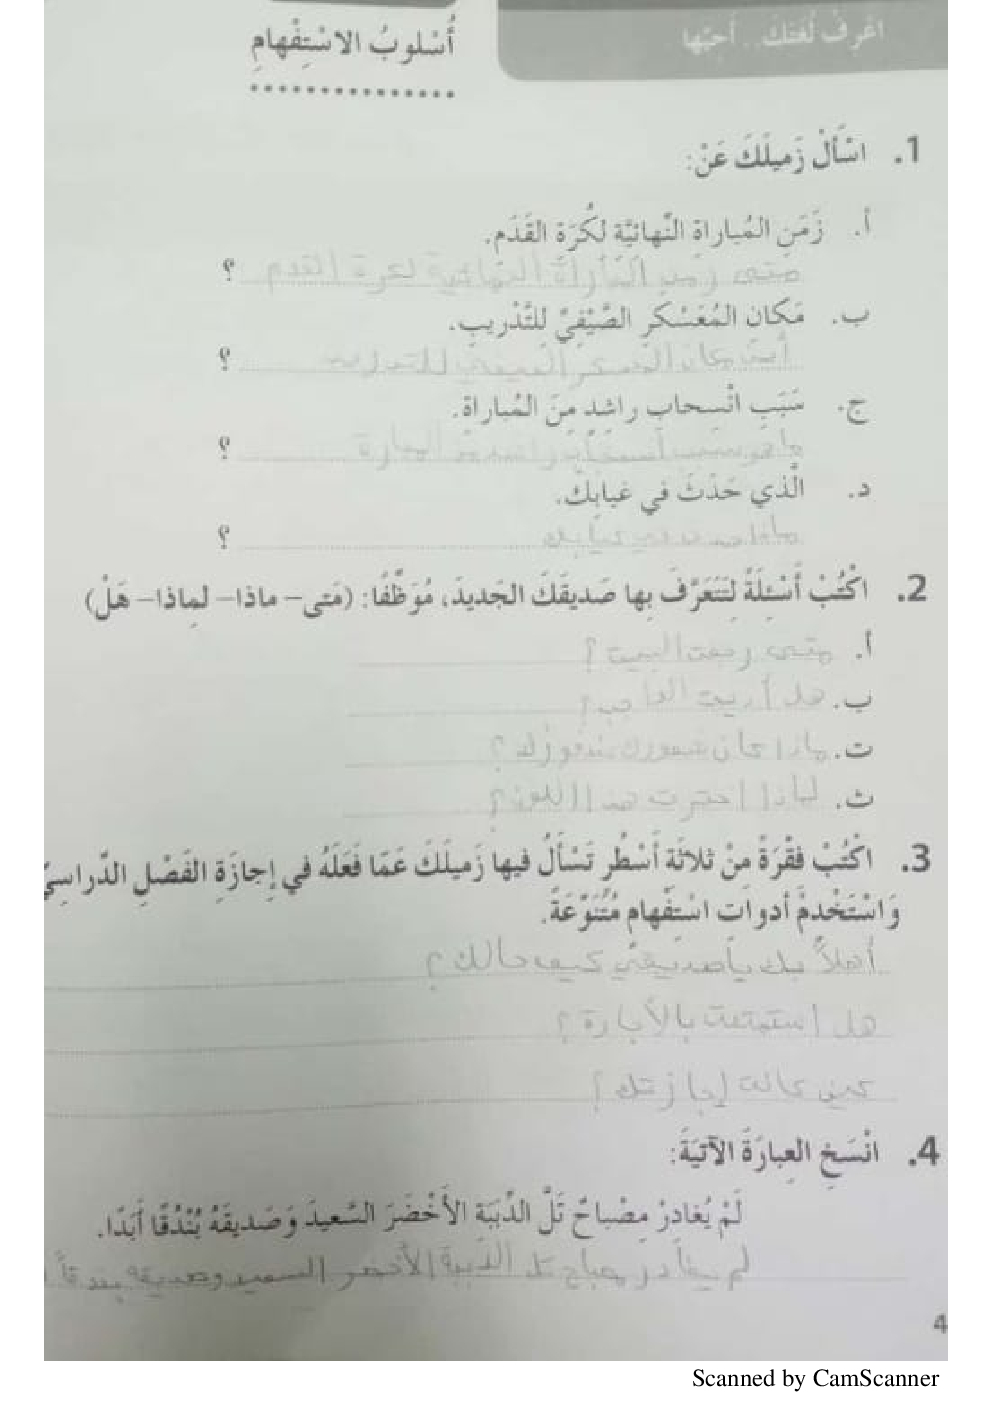 اعْرِفْ لُغَتَكَ... أَحِبَّها
أُسْلوبُ الاسْتِفْهامِ
1. اسْأَلْ زَميلَكَ عَنْ:
أ. زَمَنِ المُباراةِ النِّهائيَّة لكُرَة القَدَم.
متى زمن المباراة النهائية لكرة القدم ؟
ب. مَكان المُعَسْكَرِ الصَّيْفِيِّ لِلتَّدْريبِ.
أين مكان المعسكر الصيفي للتدريب ؟
ج. سَبَبِ انْسِحابِ راشِدٍ مِنَ المُباراةِ.
ما هو سبب انسحاب راشد من المبارة ؟
د. الَّذي حَدَثَ في غيابِكَ.
ماذا حدث في غيابك ؟
2. اكْتُبْ أَسْئِلَةً لِتَتَعَرَّفَ بِها صَديقَكَ الجَديدَ، مُوَظِّفًا: (مَتى- ماذا- لِماذا- هَلْ)
أ. متى رجعت البيت ؟
ب. هل أريت ؟
ت. ماذا كان شعورك بفوزك ؟
ث. لماذا اخترت هذا اللون ؟
3. اكْتُبْ فقْرَةً منْ ثلاثَة أَسْطُر تَسْأَلُ فيها زَميلَكَ عَمّا فَعَلَهُ في إجازَةِ الفَصْلِ الدِّراسِيِّ
وَاسْتَخْدِمْ أدوات اسْتِفْهام مُتَنَوِّعَةً.
أهلاً بك يا صديقي كيف حالك ؟
هل استمتعت بالأجازة ؟
كيف كانت إجازتك ؟
4. انْسَخِ العِبارَةَ الآتيَةَ:
لَمْ يُغادِرْ مِصْباحٌ تَلَّ الدِّبَبَةِ الأَخْضَرَ السَّعيدَ وَصَديقَهُ بُنْدُقًا أَبَدًا.
لم يغادر مصباح تل الدببة الأخضر السعيد وصديقه بندقاً
4
Scanned by CamScanner